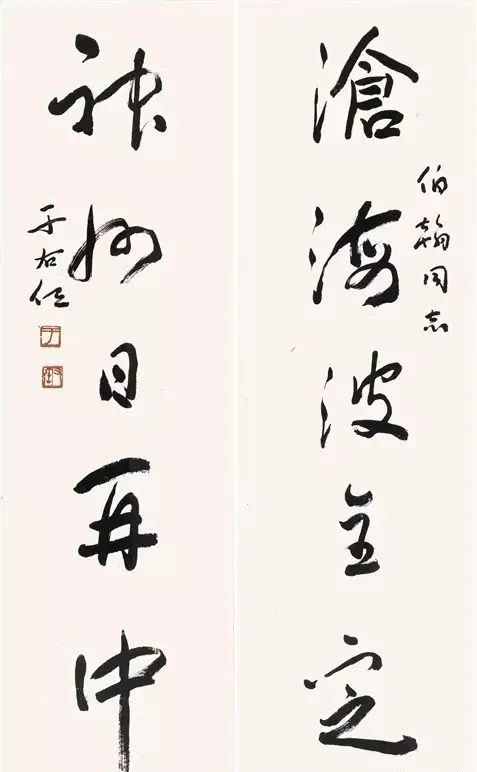 伯翰同志
滄海波全定
神州日再中
于右任